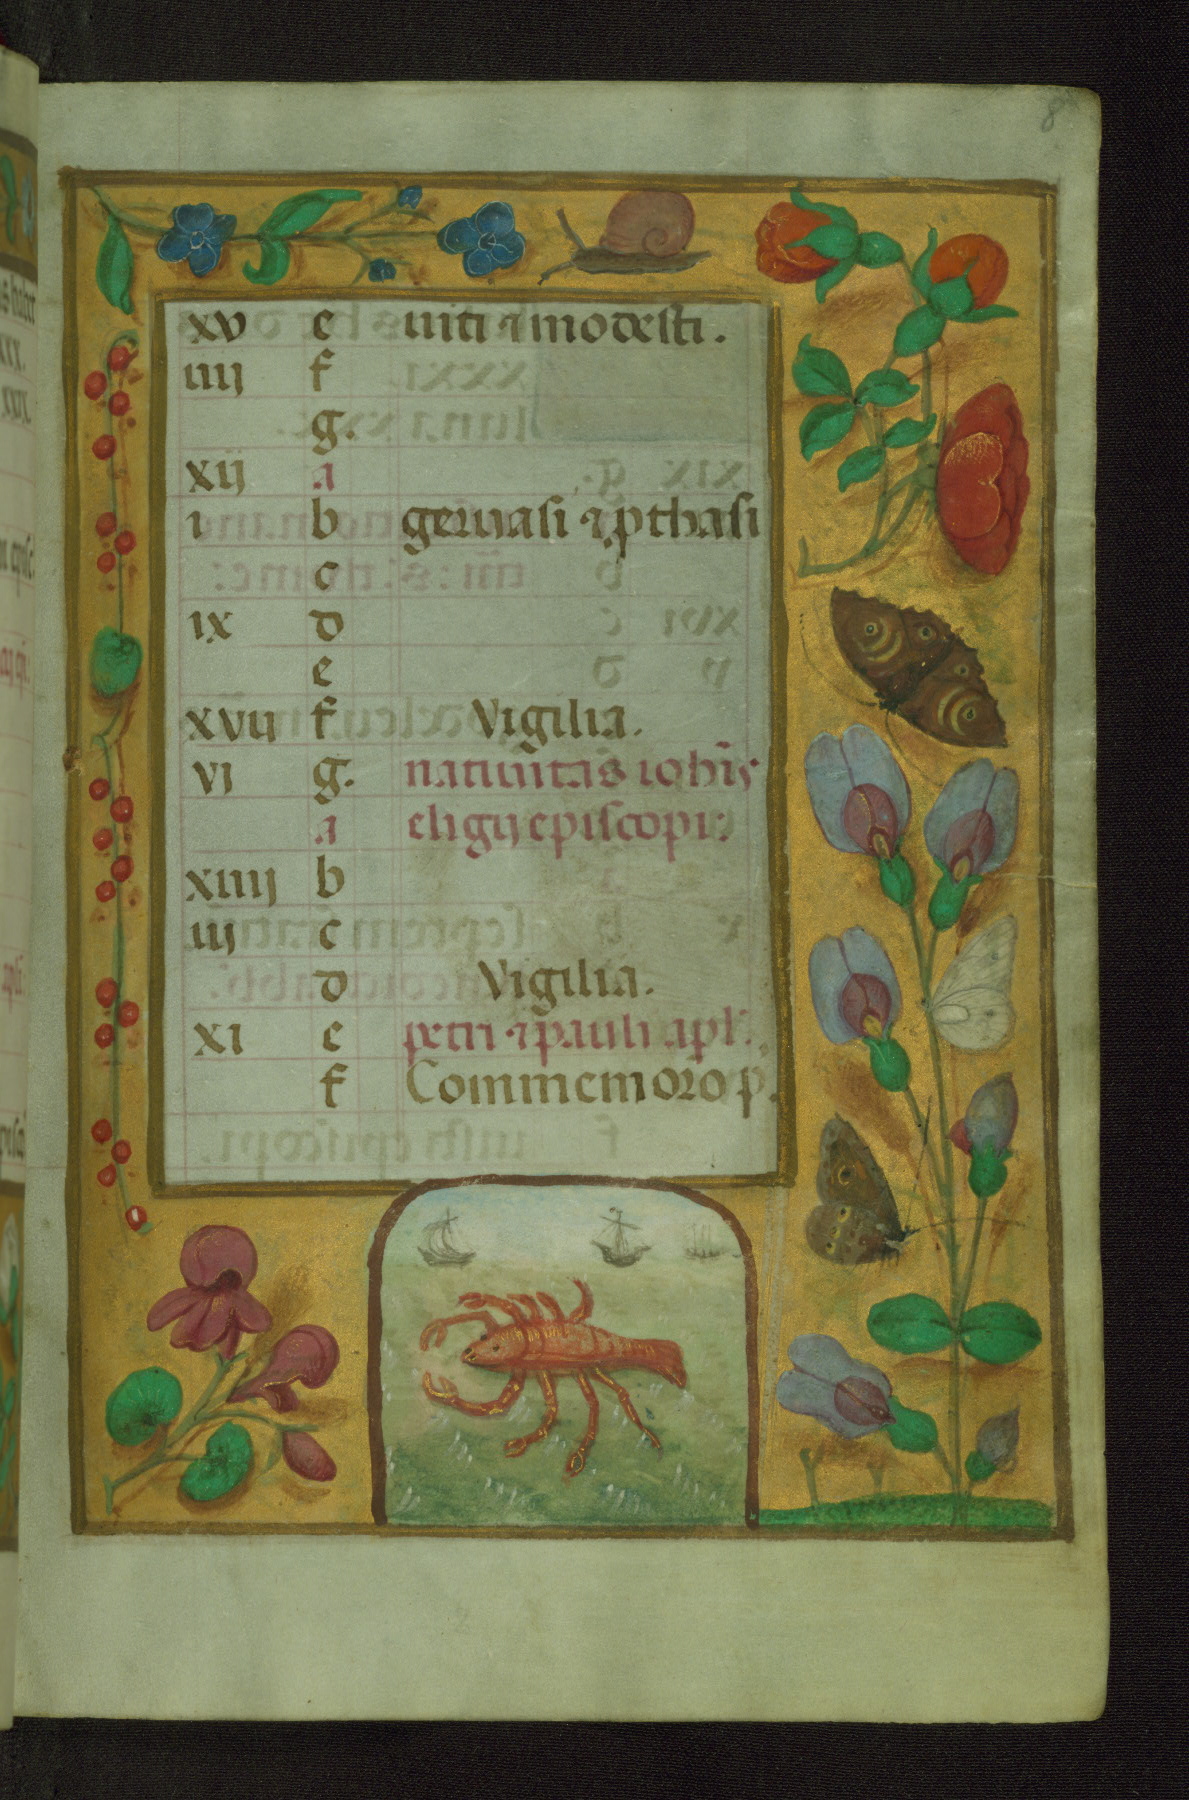 8
xv e uiti & modesti.
iiij f
g.
xij a
i b geruasi & pthasi
c
ix d
e
xvij f Vigilia.
vi g. natiuitas iohis
a eligij episcopi:
xiiij b
iij c
d Vigilia.
xi e petri & pauli apl:.
f Commemoro p.